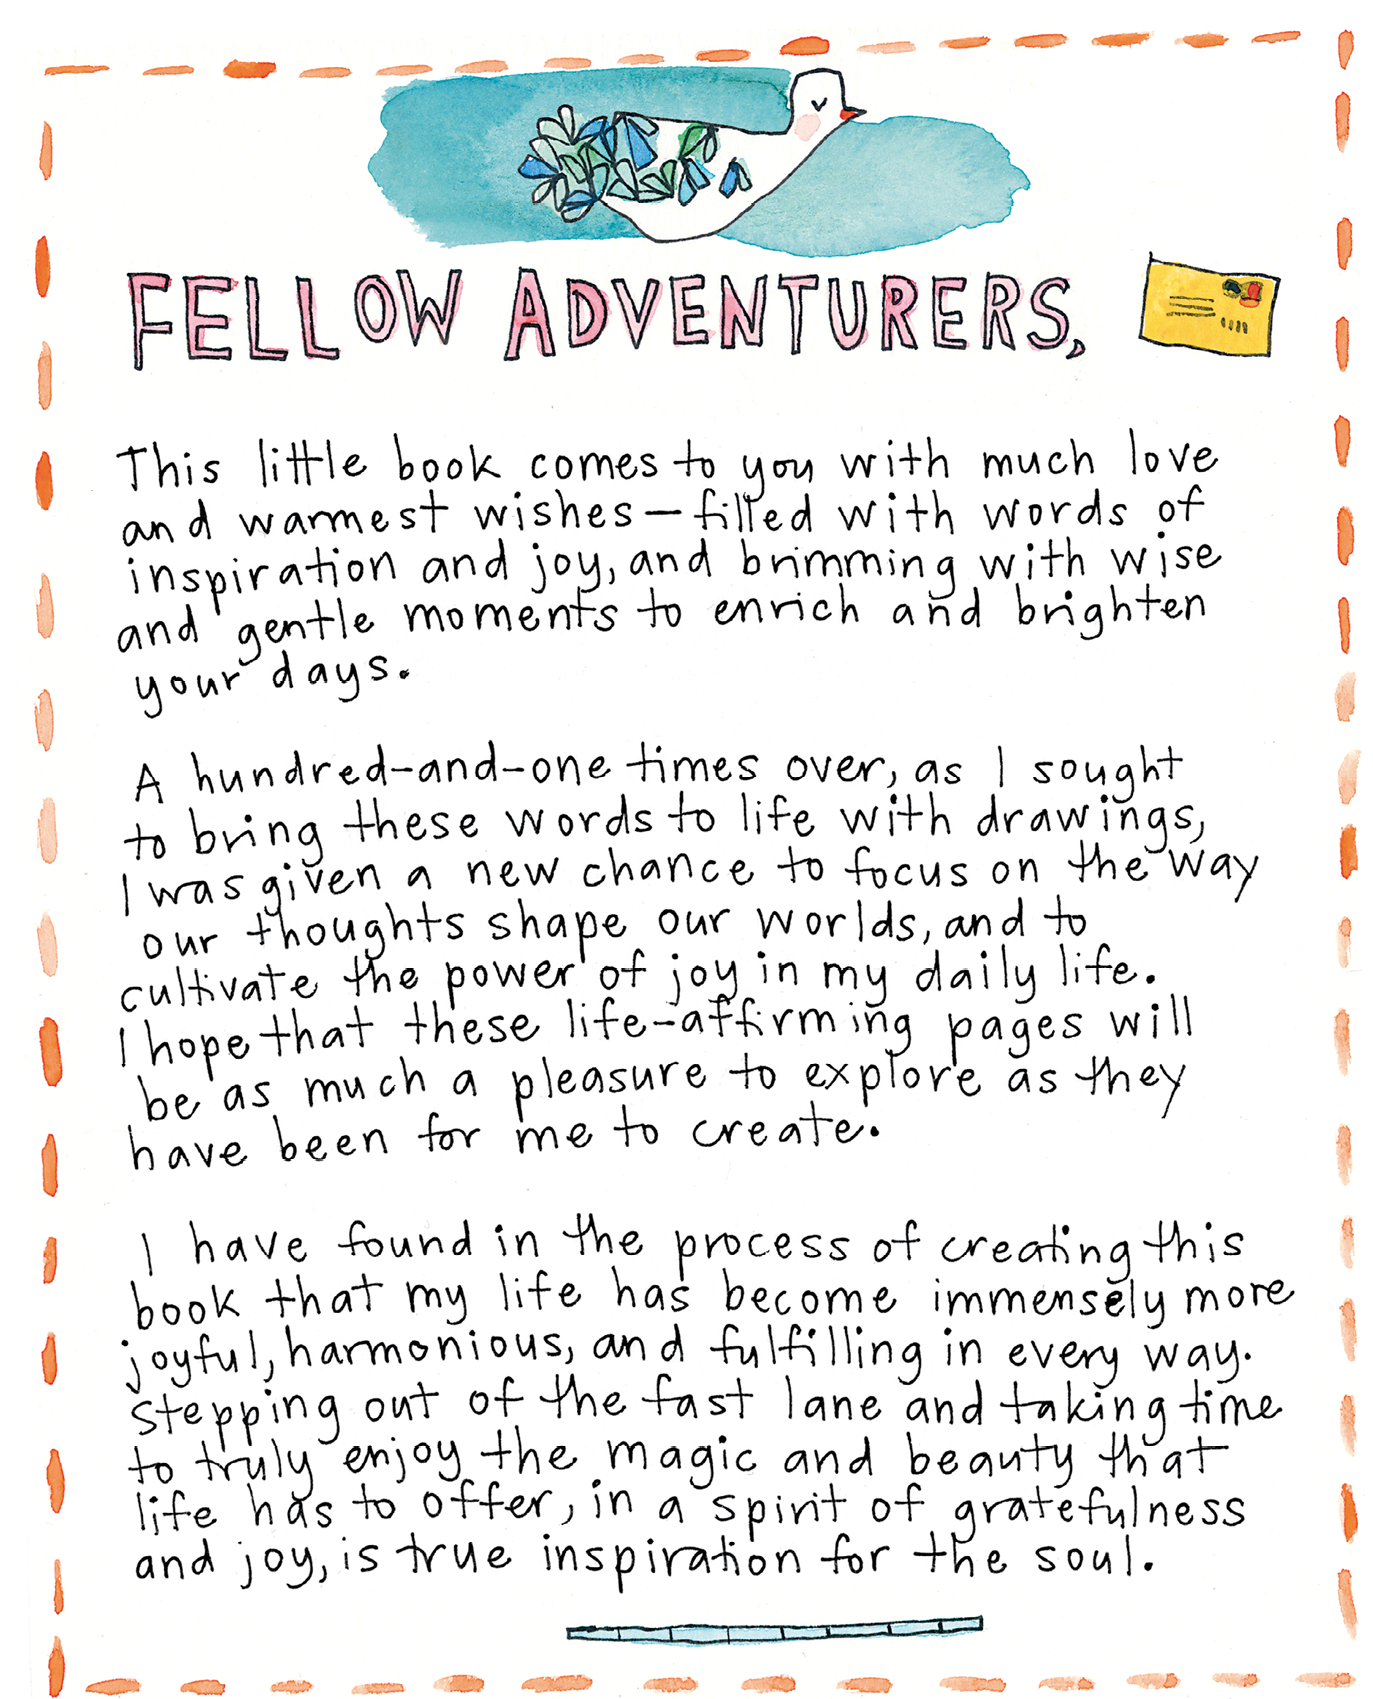 FELLOW ADVENTURERS,
This little book comes to you with much love
and warmest wishes—filled with words of
inspiration and joy, and brimming with wise
and gentle moments to enrich and brighten
your days.
A hundred-and-one times over, as I sought
to bring these words to life with drawings,
I was given a new chance to focus on the way
our thoughts shape our worlds, and to
cultivate the power of joy in my daily life.
I hope that these life-affirming pages will
be as much a pleasure to explore as they
have been for me to create.
I have found in the process of creating this
book that my life has become immensely more
joyful, harmonious, and fulfilling in every way.
Stepping out of the fast lane and taking time
to truly enjoy the magic and beauty that
life has to offer, in a spirit of gratefulness
and joy, is true inspiration for the soul.